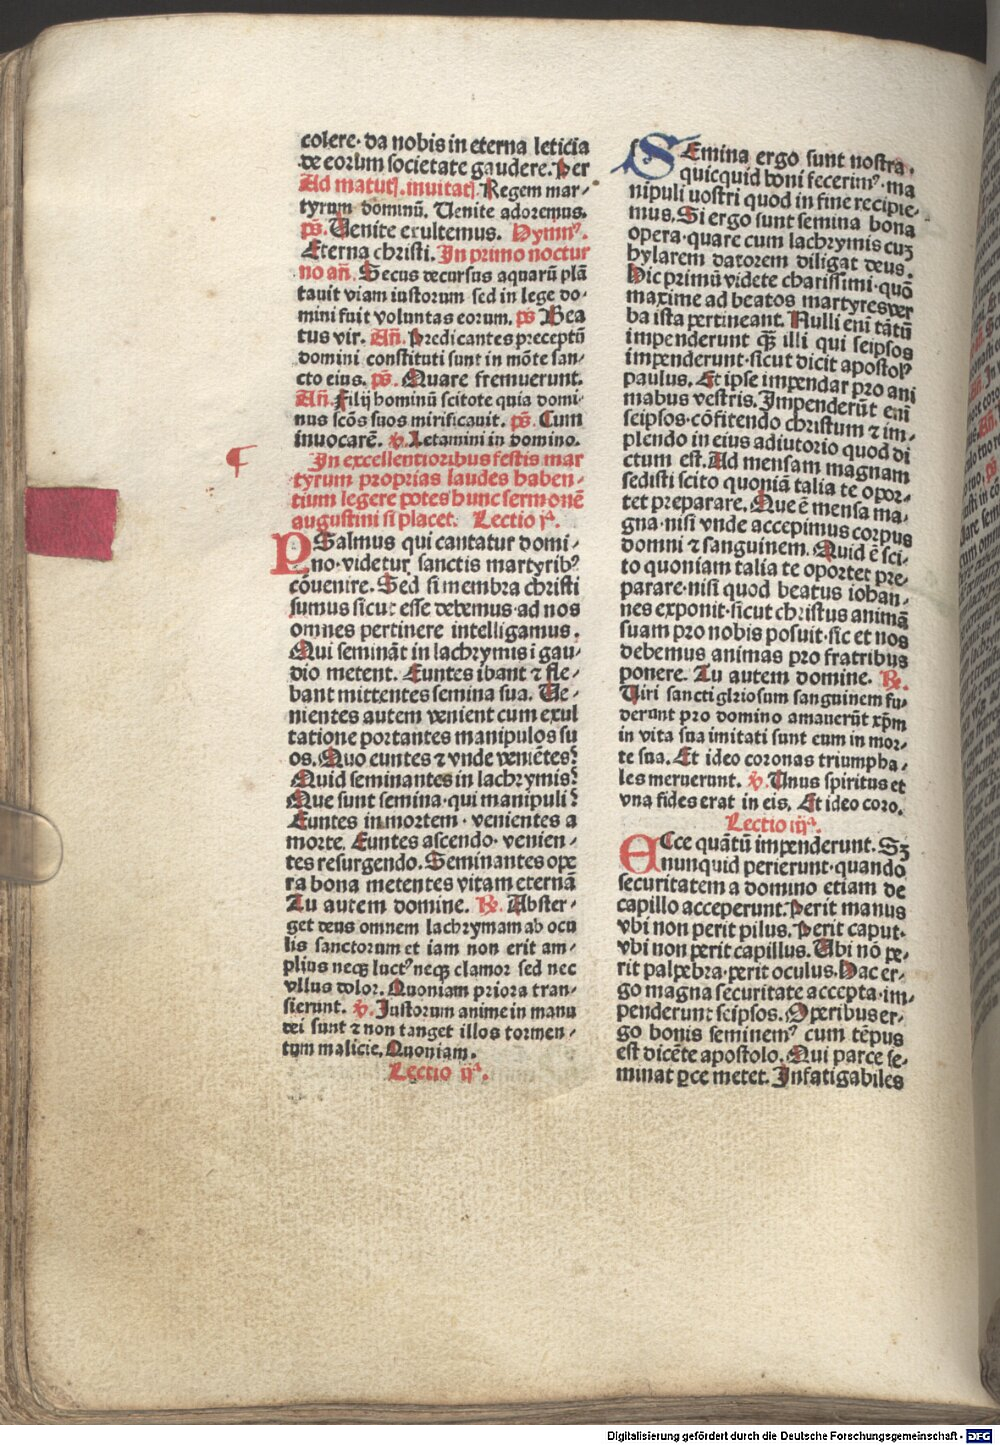 colere· da nobis in eterna leticia
de eorum societate gaudere. Per
Ad matutꝭ. invitatꝭ. Regem mar⸗
tyrum dominū. Uenite adoremus.
ps̄. Uenite exultemus. Hymnꝰ.
Eterna christi. In primo noctur
no an̄. Secus decursus aquarū plā
tauit viam iustorum sed in lege do⸗
mini fuit voluntas eorum. ps̄ Bea
tus vir. An̄. Predicantes preceptū
domini constituti sunt in mōte san⸗
cto eius. ps̄. Quare fremuerunt.
An̄. Filij hominū scitote quia domi⸗
nus scōs suos mirificauit. ps̄. Cum
inuocarē. ℣. Letamini in domino.
¶ In excellentioribus festis mar
tyrum proprias laudes haben⸗
tium legere potes hunc sermonē
augustini si placet. Lectio jª.
PSalmus qui cantatur domi⸗
no· videtur sanctis martyribꝰ
cōuenire. Sed si membra christi
sumus sicut esse debemus· ad nos
omnes pertinere intelligamus.
Qui semināt in lachrymis ī gau⸗
dio metent. Euntes ibant ⁊ fle⸗
bant mittentes semina sua. Ue⸗
nientes autem venient cum exul
tatione portantes manipulos su
os. Quo euntes ⁊ vnde veniētes?
Quid seminantes in lachrymis?
Que sunt semina· qui manipuli?
Euntes in mortem· venientes a
morte. Euntes ascendo· venien⸗
tes resurgendo. Seminantes ope
ra bona metentes vitam eternā
Tu autem domine. ℟. Abster⸗
get deus omnem lachrymam ab ocu
lis sanctorum et iam non erit am⸗
plius neqꝫ luctꝰ neqꝫ clamor sed nec
vllus dolor. Quoniam priora tran⸗
sierunt. ℣. Justorum anime in manu
dei sunt ⁊ non tanget illos tormen⸗
tum malicie. Quoniam.
Lectio ijª.
SEmina ergo sunt nostra·
quicquid boni fecerimꝰ· ma
nipuli uostri quod in fine recipie⸗
mus. Si ergo sunt semina bona
opera· quare cum lachrymis cuꝫ
hylarem datorem diligat deus.
Hic primū videte charissimi· quō
maxime ad beatos martyres ver
ba ista pertineant. Nulli eni tātū
impenderunt qꝫ̄ illi qui seipsos
impenderunt· sicut dicit apostolꝰ
paulus. Et ipse impendar pro ani
mabus vestris. Impenderūt eni
seipsos· cōfitendo christum ⁊ im⸗
plendo in eius adiutorio quod di
ctum est. Ad mensam magnam
sedisti scito quoniā talia te opor⸗
tet preparare. Que ē mensa ma⸗
gna· nisi vnde accepimus corpus
domni ⁊ sanguinem. Quid ē sci⸗
to quoniam talia te oportet pre⸗
parare· nisi quod beatus iohan⸗
nes exponit· sicut christus animā
suam pro nobis posuit· sic et nos
debemus animas pro fratribus
ponere. Tu autem domine. ℟.
Uiri sancti glriosum sanguinem fu⸗
derunt pro domino amauerūt xp̄m
in vita sua imitati sunt eum in mor⸗
te sua. Et ideo coronas triumpha⸗
les meruerunt. ℣. Unus spiritus et
vna fides erat in eis. Et ideo coro.
Lectio iijª.
ECce quātū impenderunt. Sꝫ
nunquid perierunt· quando
securitatem a domino etiam de
capillo acceperunt. Perit manus
vbi non perit pilus. Perit caput·
vbi non perit capillus. Ubi nō pe⸗
rit palpebra· perit oculus. Hac er⸗
go magna securitate accepta· im⸗
penderunt seipsos. Operibus er⸗
go bonis seminemꝰ cum tēpus
est dicēte apostolo. Qui parce se⸗
minat ꝑce metet. Infatigabiles
Digitalisierung gefördert durch die Deutsche Forschungsgemeinschaft - DFG